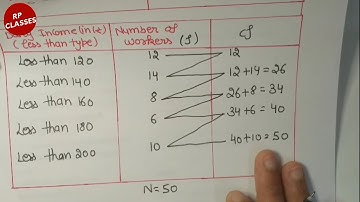 RP
CLASSES
Income (in ₹) Number of cf
(less than type) workers (f)
Less than 120 12 12
Less than 140 14 12+14=26
Less than 160 8 26+8=34
Less than 180 6 34+6=40
Less than 200 10 40+10=50
N=50